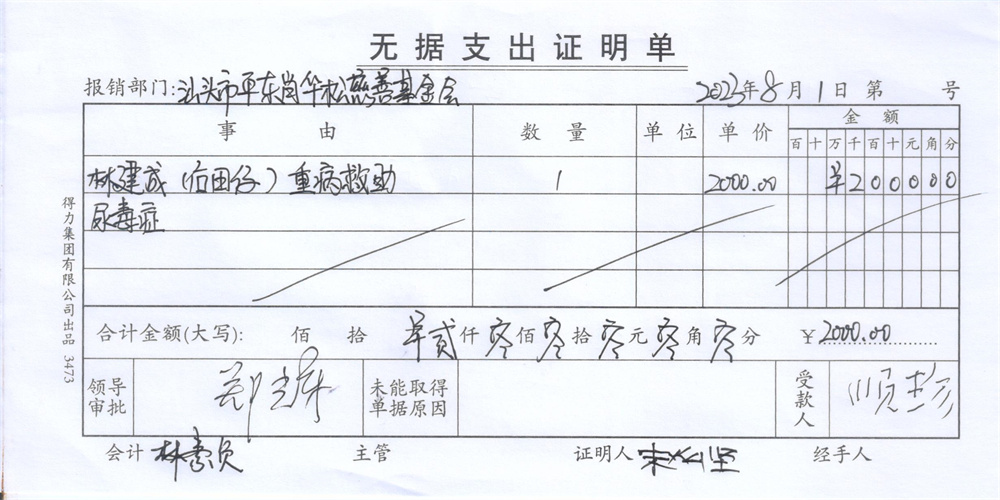 无据支出证明单
报销部门: 汕头市平东肖华松慈善基金会 2023年8月1日 第 号
事由 数量 单位 单价 金额
百十万千百十元角分
林建成(后田仔)重病救助 1 2000.00 200000
尿毒症
合计金额(大写): 佰 拾 贰仟零佰零拾零元零角零分 ¥2000.00
领导审批 未能取得单据原因 受款人 顺
会计 林 主管 证明人 经手人
得力集团有限公司出品 3473